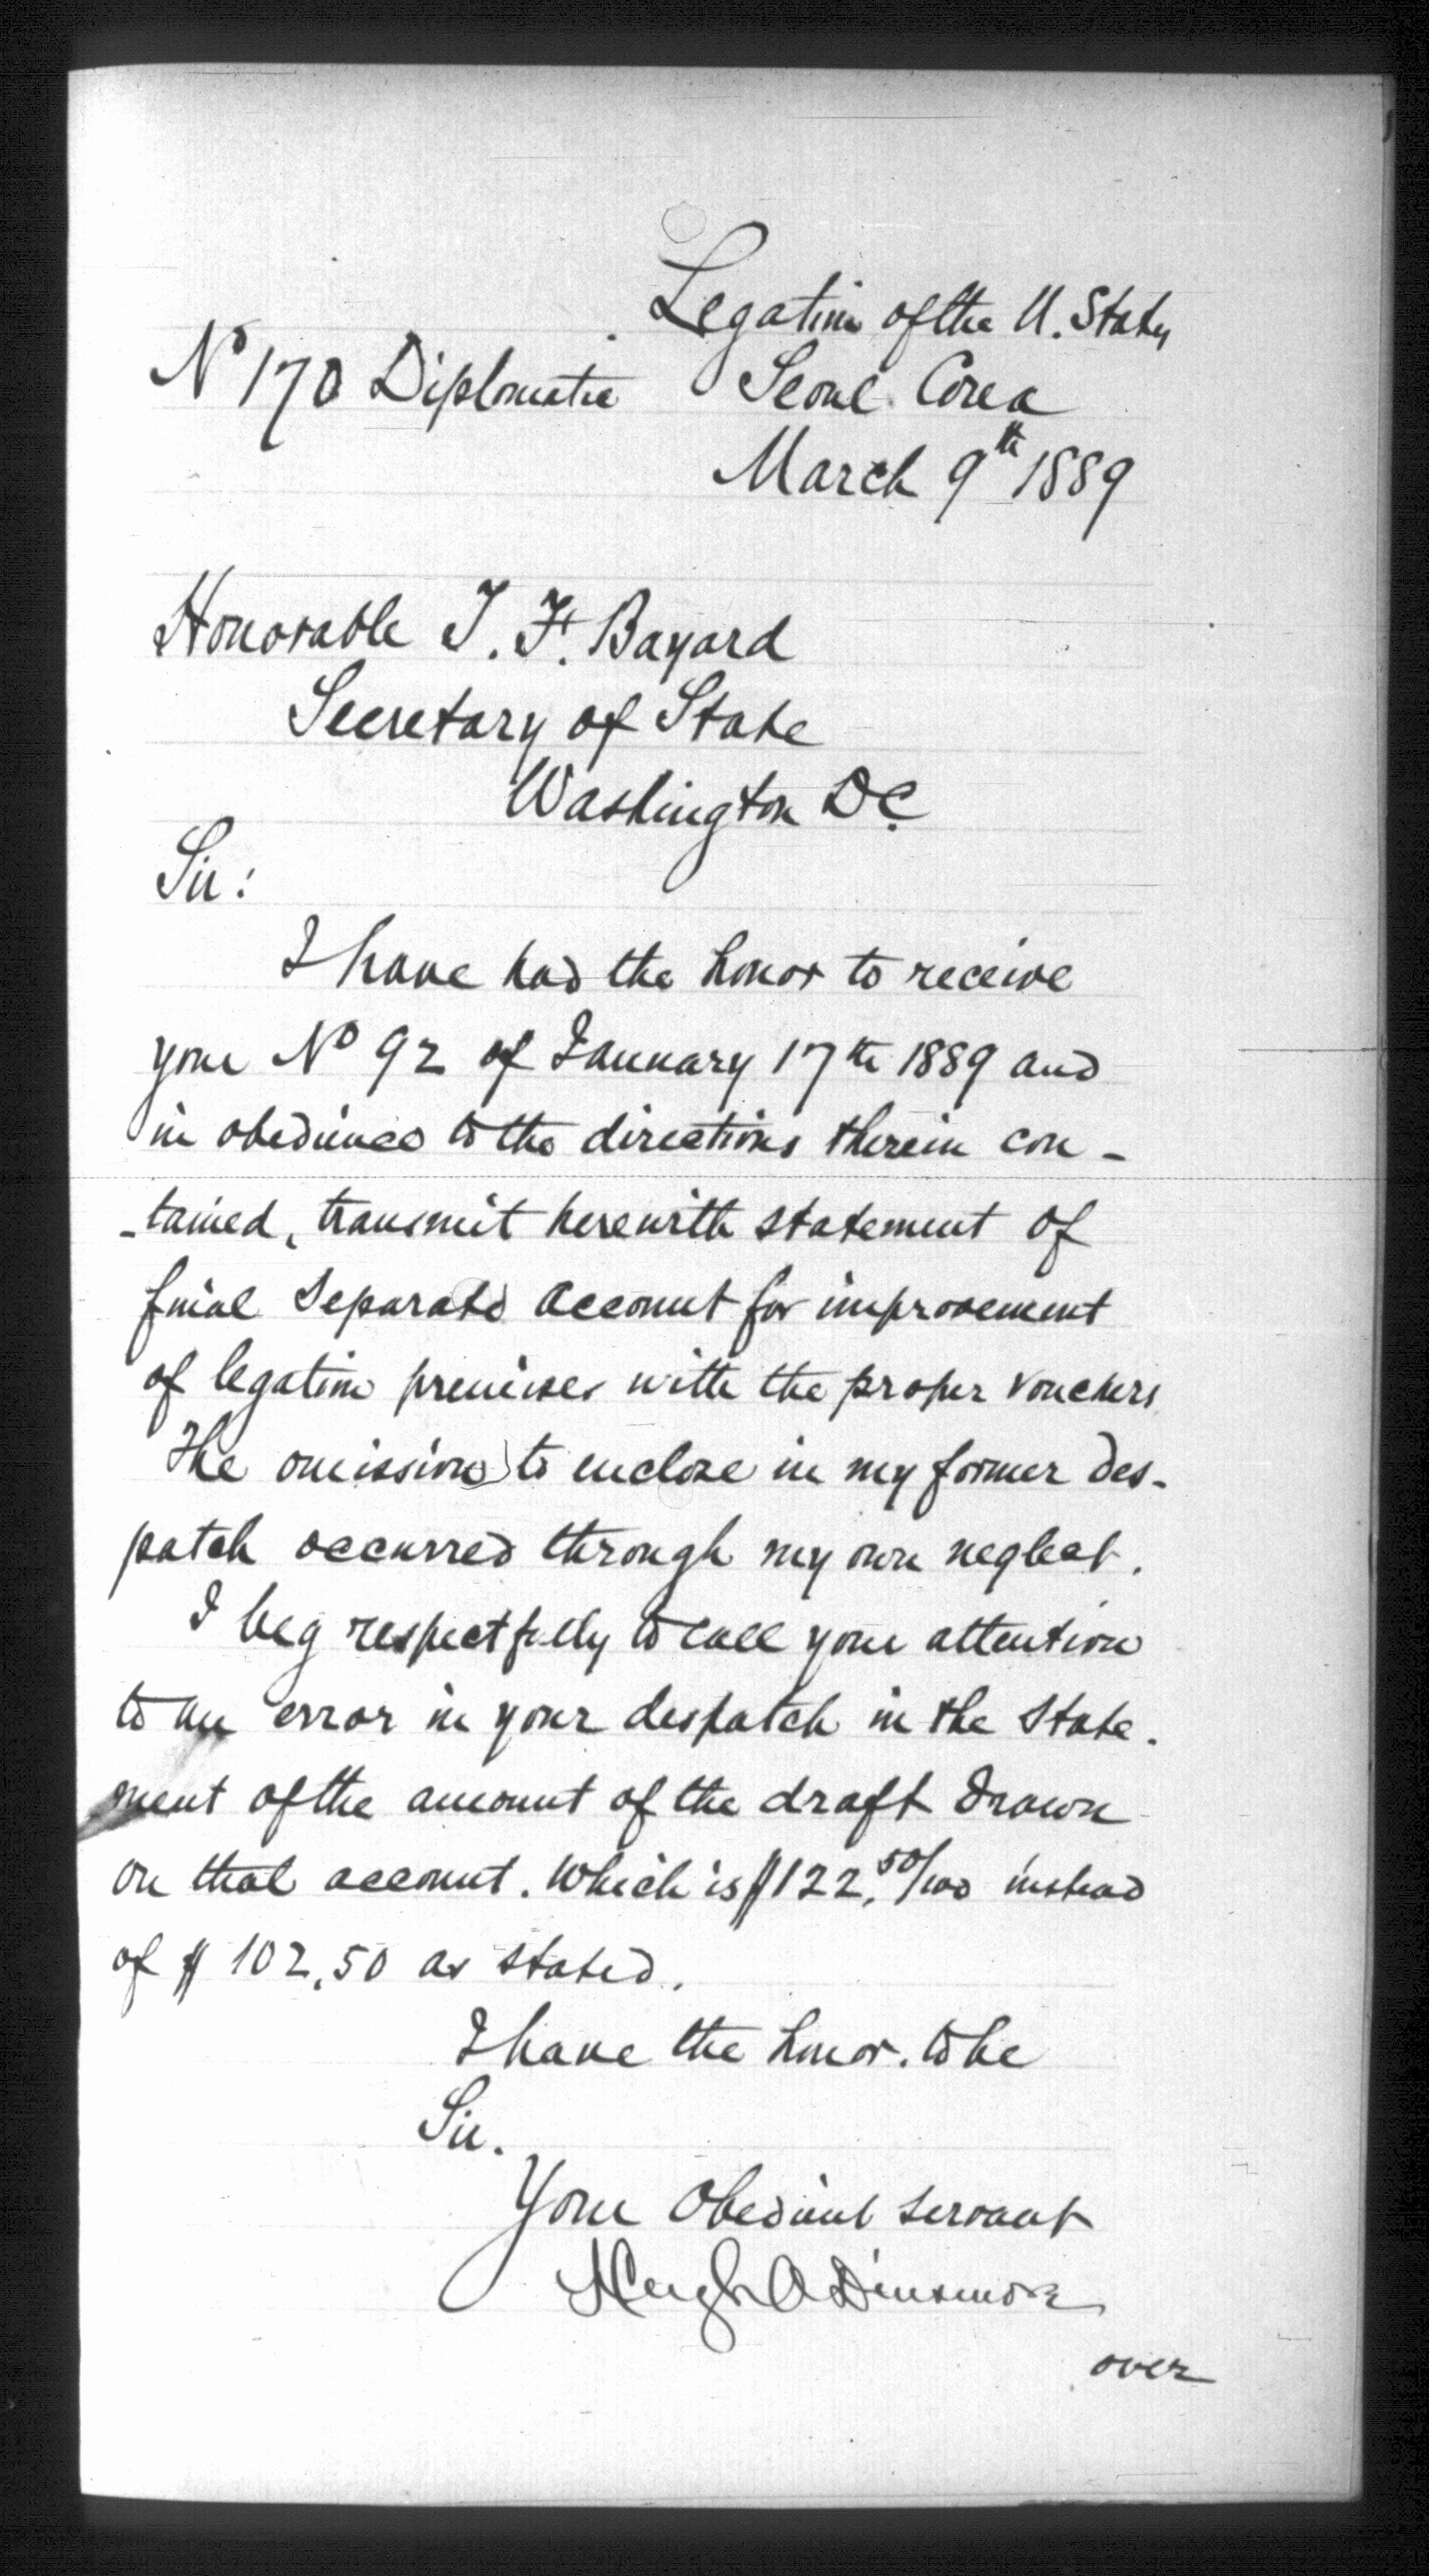 Legation of the U. States
No 170 Diplomatic Seoul Corea
March 9th 1889
Honorable T. F. Bayard
Secretary of State
Washington DC.
Sir:
I have had the honor to receive
your No 92 of January 17th 1889 and
in obedience to the directions therein con-
-tained, transmit herewith statement of
final separate account for improvement
of legation premises with the proper vouchers
The omission to enclose in my former des-
patch occurred through my own neglect.
I beg respectfully to call your attention
to an error in your despatch in the state-
ment of the amount of the draft drawn
on that account. Which is $122.50/100 instead
of $102.50 as stated.
I have the honor. to be
Sir.
Your Obedient servant
Hugh A Dinsmore
over